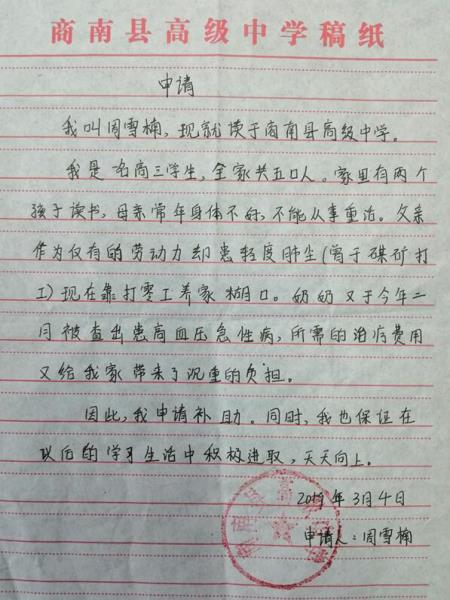 商南县高级中学稿纸
申请
我叫周雪楠，现就读于商南县高级中学。
我是名高三学生，全家共五口人。家里有两个
孩子读书，母亲常年身体不好，不能从事重活。父亲
作为仅有的劳动力却患轻度肺尘（曾于煤矿打
工）现在靠打零工养家糊口。奶奶又于今年二
月被查出患高血压急性病，所需的治疗费用
又给我家带来了沉重的负担。
因此，我申请补助。同时，我也保证在
以后的学习生活中积极进取，天天向上。
2019年3月4日
申请人：周雪楠